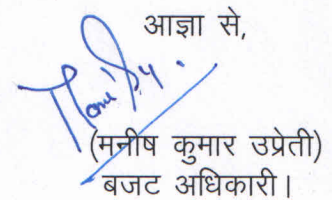 आज्ञा से,
(मनीष कुमार उप्रेती)
बजट अधिकारी।